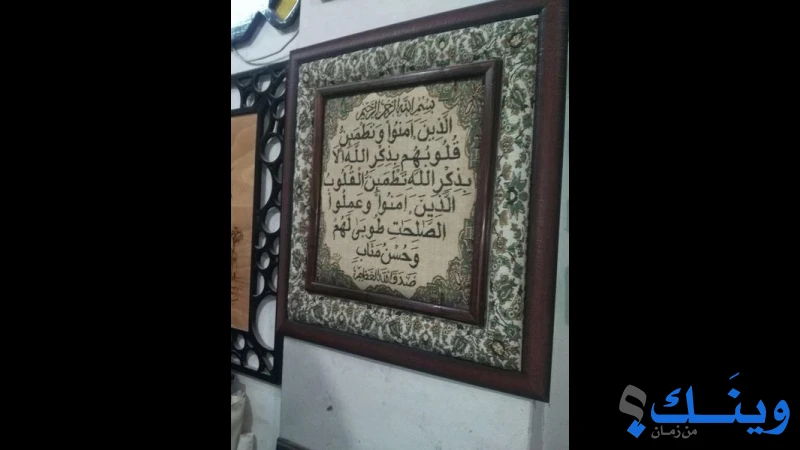 بسم الله الرحمن الرحيم
الَّذِينَ ءَامَنُوا وَتَطْمَئِنُّ
قُلُوبُهُم بِذِكْرِ اللَّهِ أَلَا
بِذِكْرِ اللَّهِ تَطْمَئِنُّ الْقُلُوبُ
الَّذِينَ ءَامَنُوا وَعَمِلُوا
الصَّٰلِحَٰتِ طُوبَىٰ لَهُمْ
وَحُسْنُ مَـَٔابٍ
صدق الله العظيم
وينَـك؟
من زمـان